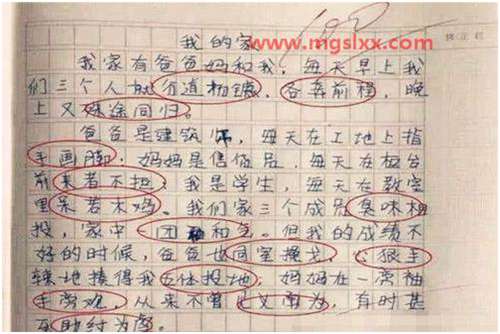 www.mgslxx.com
我的家
我家有爸爸妈和我，每天早上我
们三个人就分道扬镳，各奔前程，晚
上又殊途同归。
爸爸是建筑师，每天在工地上指
手画脚；妈妈是售货员，每天在柜台
前来者不拒；我是学生，每天在教室
里呆若木鸡。我们家三个成员臭味相
投，家中一团和气。但我的成绩不
好的时候，爸爸也同室操戈，心狠手
辣地揍得我五体投地，妈妈在一旁袖
手旁观，从来不曾见义勇为，有时甚
至助纣为虐。